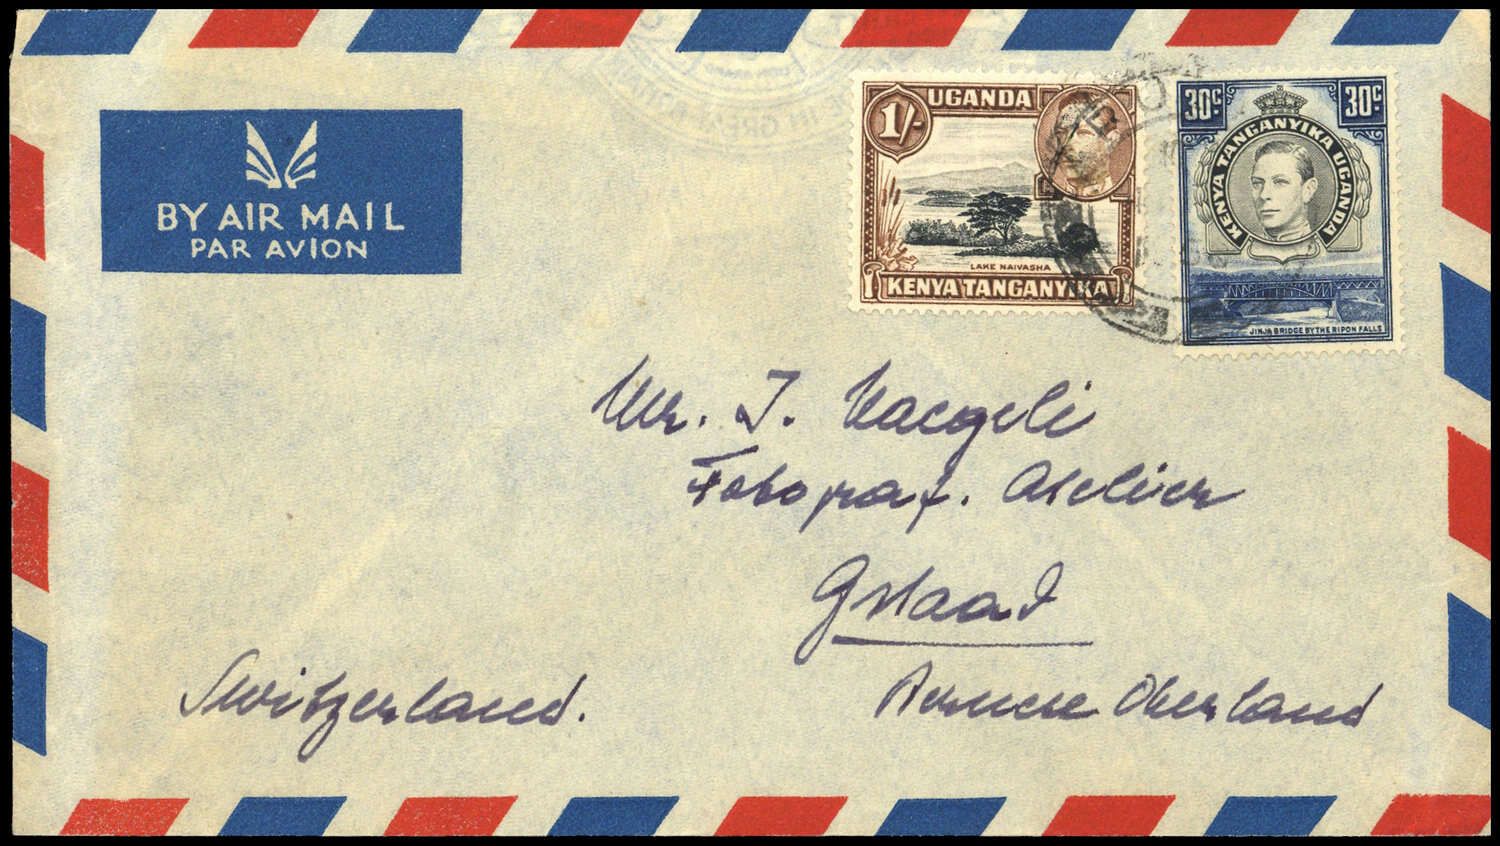 BY AIR MAIL
PAR AVION
1/-
UGANDA
LAKE NAIVASHA
KENYA TANGANYIKA
30c 30c
KENYA TANGANYIKA UGANDA
JINJA BRIDGE BY THE RIPON FALLS
Mr. J. Naegeli
Fotograf. Atelier
Gstaad
Switzerland.
Berner Oberland